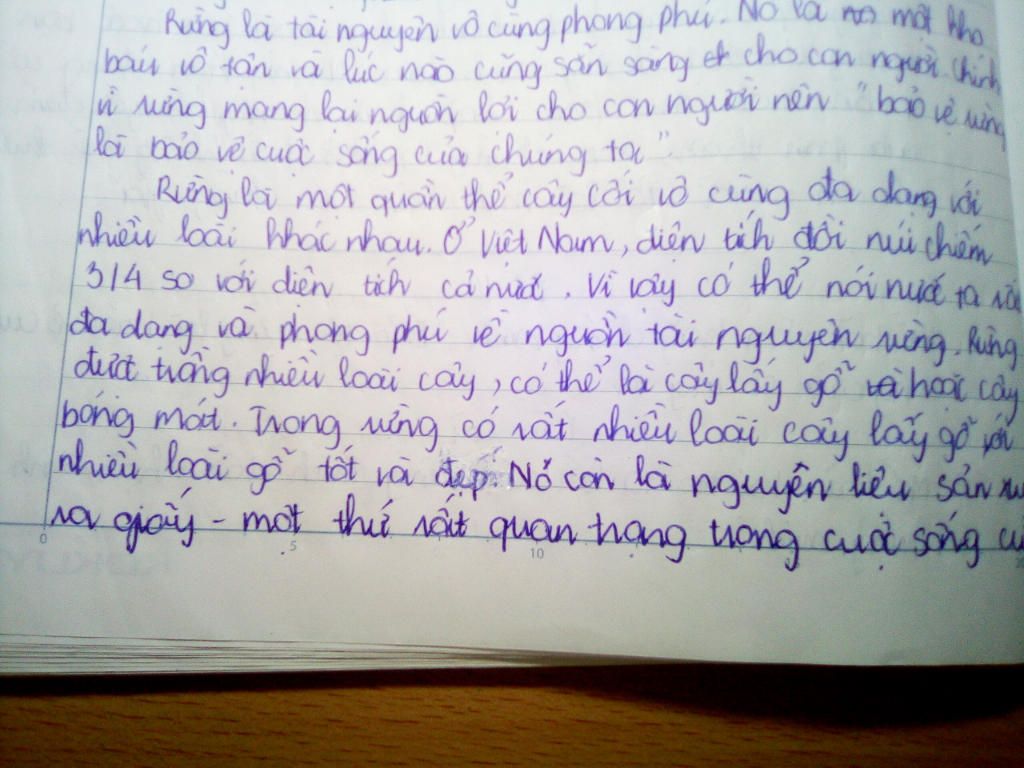 Rừng là tài nguyên vô cùng phong phú. Nó là một kho
báu vô tận và lúc nào cũng sẵn sàng cho con người. Chính
vì rừng mang lại nguồn lợi cho con người nên "bảo vệ rừng
là bảo vệ cuộc sống của chúng ta"
Rừng là một quần thể cây cối vô cùng đa dạng với
nhiều loài khác nhau. Ở Việt Nam, diện tích đồi núi chiếm
3/4 so với diện tích cả nước. Vì vậy có thể nói nước ta rất
đa dạng và phong phú về nguồn tài nguyên rừng. Rừng
được trồng nhiều loài cây, có thể là cây lấy gỗ hoặc cây
bóng mát. Trong rừng có rất nhiều loài cây lấy gỗ với
nhiều loài gỗ tốt và đẹp. Nó còn là nguyên liệu sản
ra giấy - một thứ rất quan trọng trong cuộc sống
0 5 10